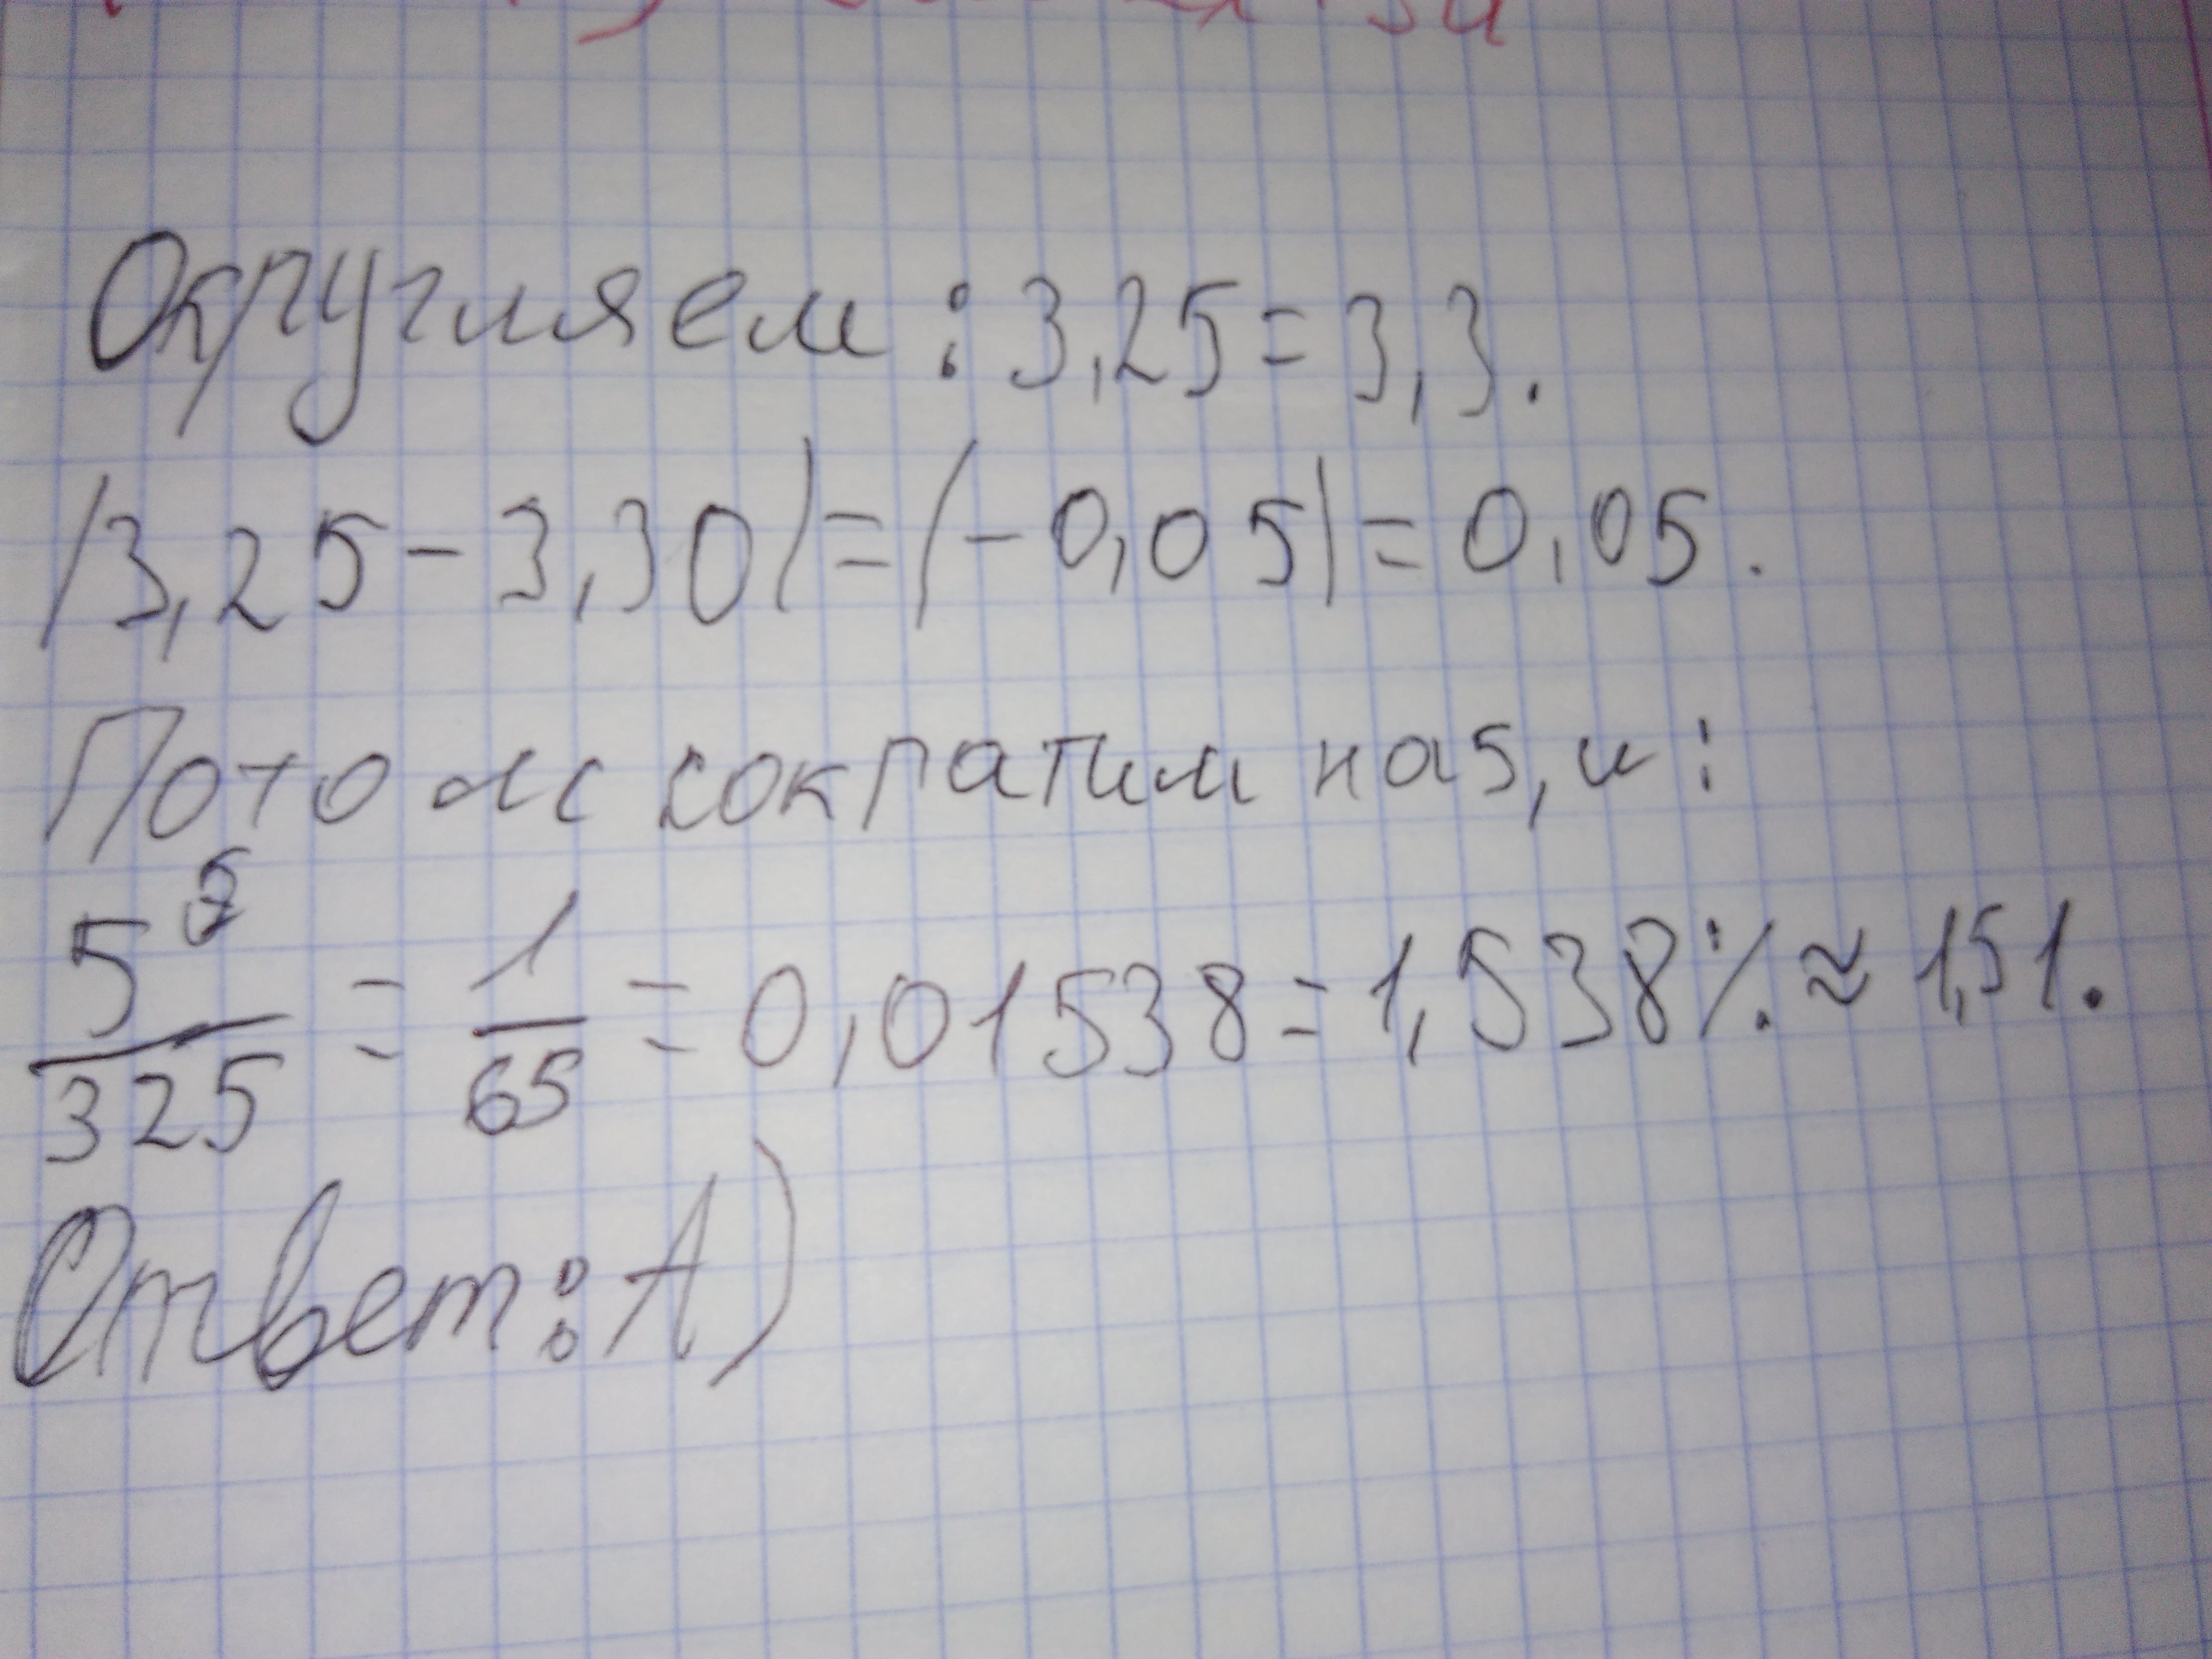 Округляем: 3,25=3,3.
|3,25-3,30|=|-0,05|=0,05.
Потом сократим на 5, и:
5/325 = 1/65 = 0,01538=1,538% ≈ 1,51.
Ответ: А)